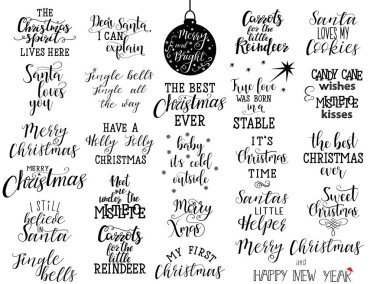 THE
Christmas
spirit
LIVES HERE
Santa
loves
you
Merry
Christmas
MERRY
Christmas
I STILL
believe
in
Santa
Jingle
bells
Dear Santa
I CAN
explain
Jingle bells
Jingle all
the way
HAVE A
Holly Jolly
CHRISTMAS
Meet
me
under the
MISTLETOE
Carrots
for the
little
REINDEER
Merry
and
Bright
THE BEST
Christmas
EVER
baby
it's cold
outside
Merry
Xmas
MY FIRST
Christmas
Carrots
for the
little
Reindeer
True love
WAS BORN
in a
STABLE
IT'S
Christmas
TIME
Santas
LITTLE
Helper
Merry Christmas
and
HAPPY NEW YEAR
Santa
LOVES MY
Cookies
CANDY CANE
wishes
MISTLETOE
kisses
the best
CHRISTMAS
ever
Sweet
Christmas